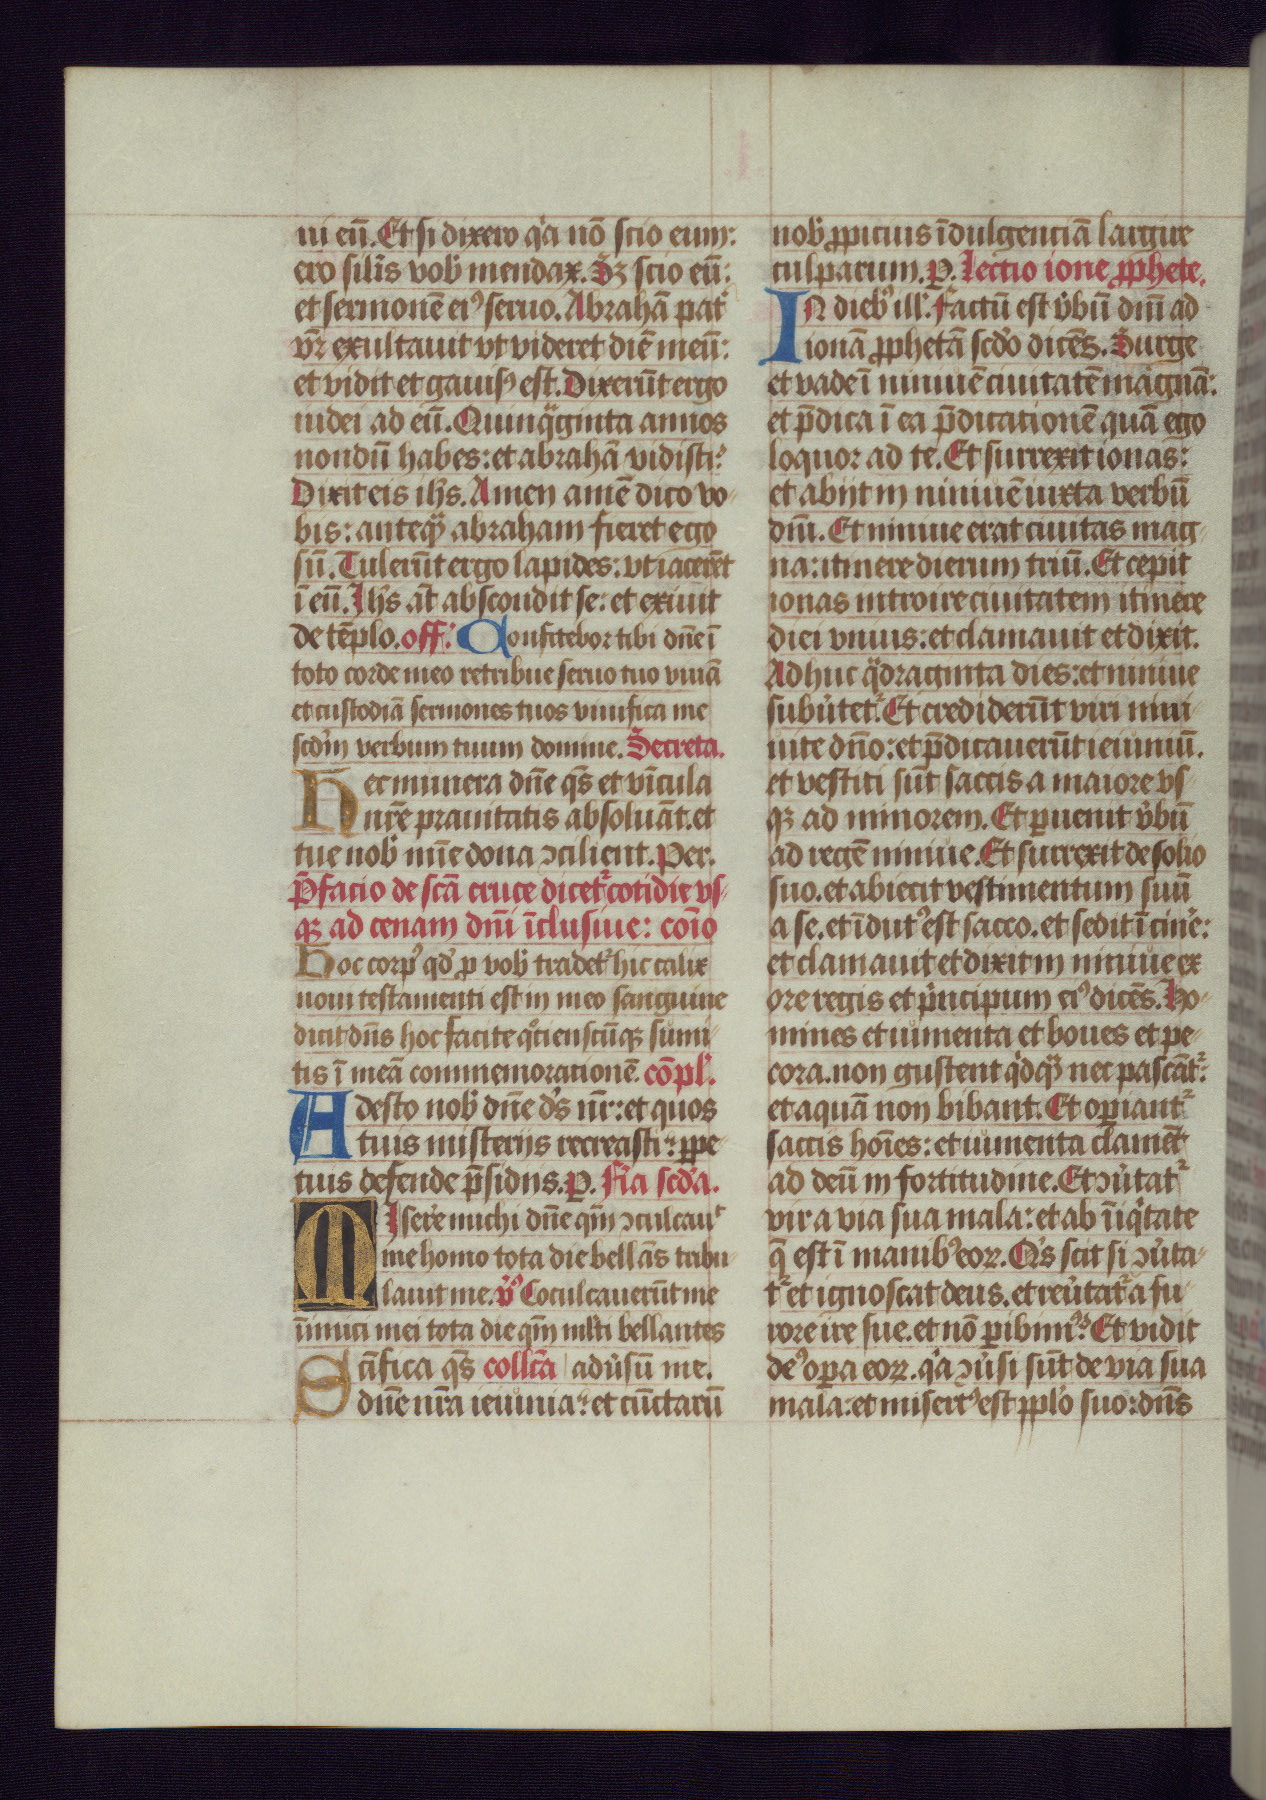 ui eū. Et si dixero qͥa nō scio eum:
ero silis̄ vob̓ mendax. Sꝫ scio eū:
et sermonē eiꝰ seruo. Abrahā pat̓
vr̄ exultauit vt videret diē meū:
et vidit et gauisꝰ est. Dixerūt ergo
iudei ad eū. Quinqᷓginta annos
nondū habes: et abrahā vidisti?
Dixit eis ihs̄. Amen amē dico vo-
bis: anteqᷓ abraham fieret ego
sū. Tulerūt ergo lapides: vt iacerēt
ī eū. Ihs̄ āt abscondit se: et exiuit
de tēplo. off. Confitebor tibi dn̄e ī
toto corde meo retribue seruo tuo viuā
et custodiā sermones tuos viuifica me
scdm̄ verbum tuum domine. Secreta.
Hec munera dn̄e qs̄ et vīcula
nr̄e prauitatis absoluāt. et
tue nob̓ mīe dona ↄcilient. Per.
P̄facio de scā cruce dicet᷑ cotidie vs-
qꝫ ad cenam dnī īclusiue: cōīo
Hoc corpꝰ qd̓ ꝓ vob̓ tradet᷑ hic calix
noui testamenti est in meo sanguine
dicit dn̄s hoc facite qͦtienscūqꝫ sumi-
tis ī meā commemorationē. cōpl̓.
Adesto nob̓ dn̄e ds̓ nr̄: et quos
tuis misterijs recreasti: ꝑpe-
tuis defende p̄sidijs. P. Fīa scd̓a.
MIsere michi dn̄e qm̄ ↄculcauͭ
me homo tota die bellās tribu-
lauit me. vͦ Coculcauerūt me
īimici mei tota die qm̄ ml̓ti bellantes
Sc̄ifica qs̄ collc̄a aduͥsū me.
dn̄e nr̄a ieiunia: et cūctarū
nob̓ ꝓpicius īdulgenciā largire
culparum. P. Lectio ione ꝓphete.
In diebꝰ ill̓. Factū est v̓bū dnī ad
ionā ꝓphetā scd̓o dicēs. Surge
et vade ī niniuē ciuitatē magnā:
et p̄dica ī ea p̄dicationē quā ego
loquor ad te. Et surrexit ionas:
et abijt in niniuē iuxta verbū
dnī. Et niniue erat ciuitas mag-
na: itinere dierum triū. Et cepit
ionas introire ciuitatem itinere
diei vnius: et clamauit et dixit.
Adhuc qᷓdraginta dies: et niniue
subv̓tet᷑. Et crediderūt viri nini-
uite dn̄o: et p̄dicauerūt ieiuniū.
et vestiti sūt saccis a maiore vs-
qꝫ ad minorem. Et ꝑuenit v̓bū
ad regē niniue. Et surrexit de solio
suo. et abiecit vestimentum suū
a se. et īdutꝰ est sacco. et sedit ī cinēe:
et clamauit et dixit in niniue ex
ore regis et pͥncipum eiꝰ dicēs. Ho-
mines et iumenta et boues et pe-
cora. non gustent qͥdqᷓ nec pascāt᷑:
et aquā non bibant. Et oꝑiant᷑
saccis hoīes: et iumenta clamēt
ad deū in fortitudine. Et ↄv̓tat᷑
vir a via sua mala: et ab īiqͥtate
q̄ est ī manibꝰ eoꝝ. Qͥs scit si ↄv̓ta-
t᷑ et ignoscat deus. et rev̓tat᷑ a fu-
rore ire sue. et nō ꝑibimꝰ? Et vidit
deꝰ oꝑa eoꝝ. qͥa ↄv̓si sūt de via sua
mala: et misertꝰ est ppl̓o suo: dn̄s